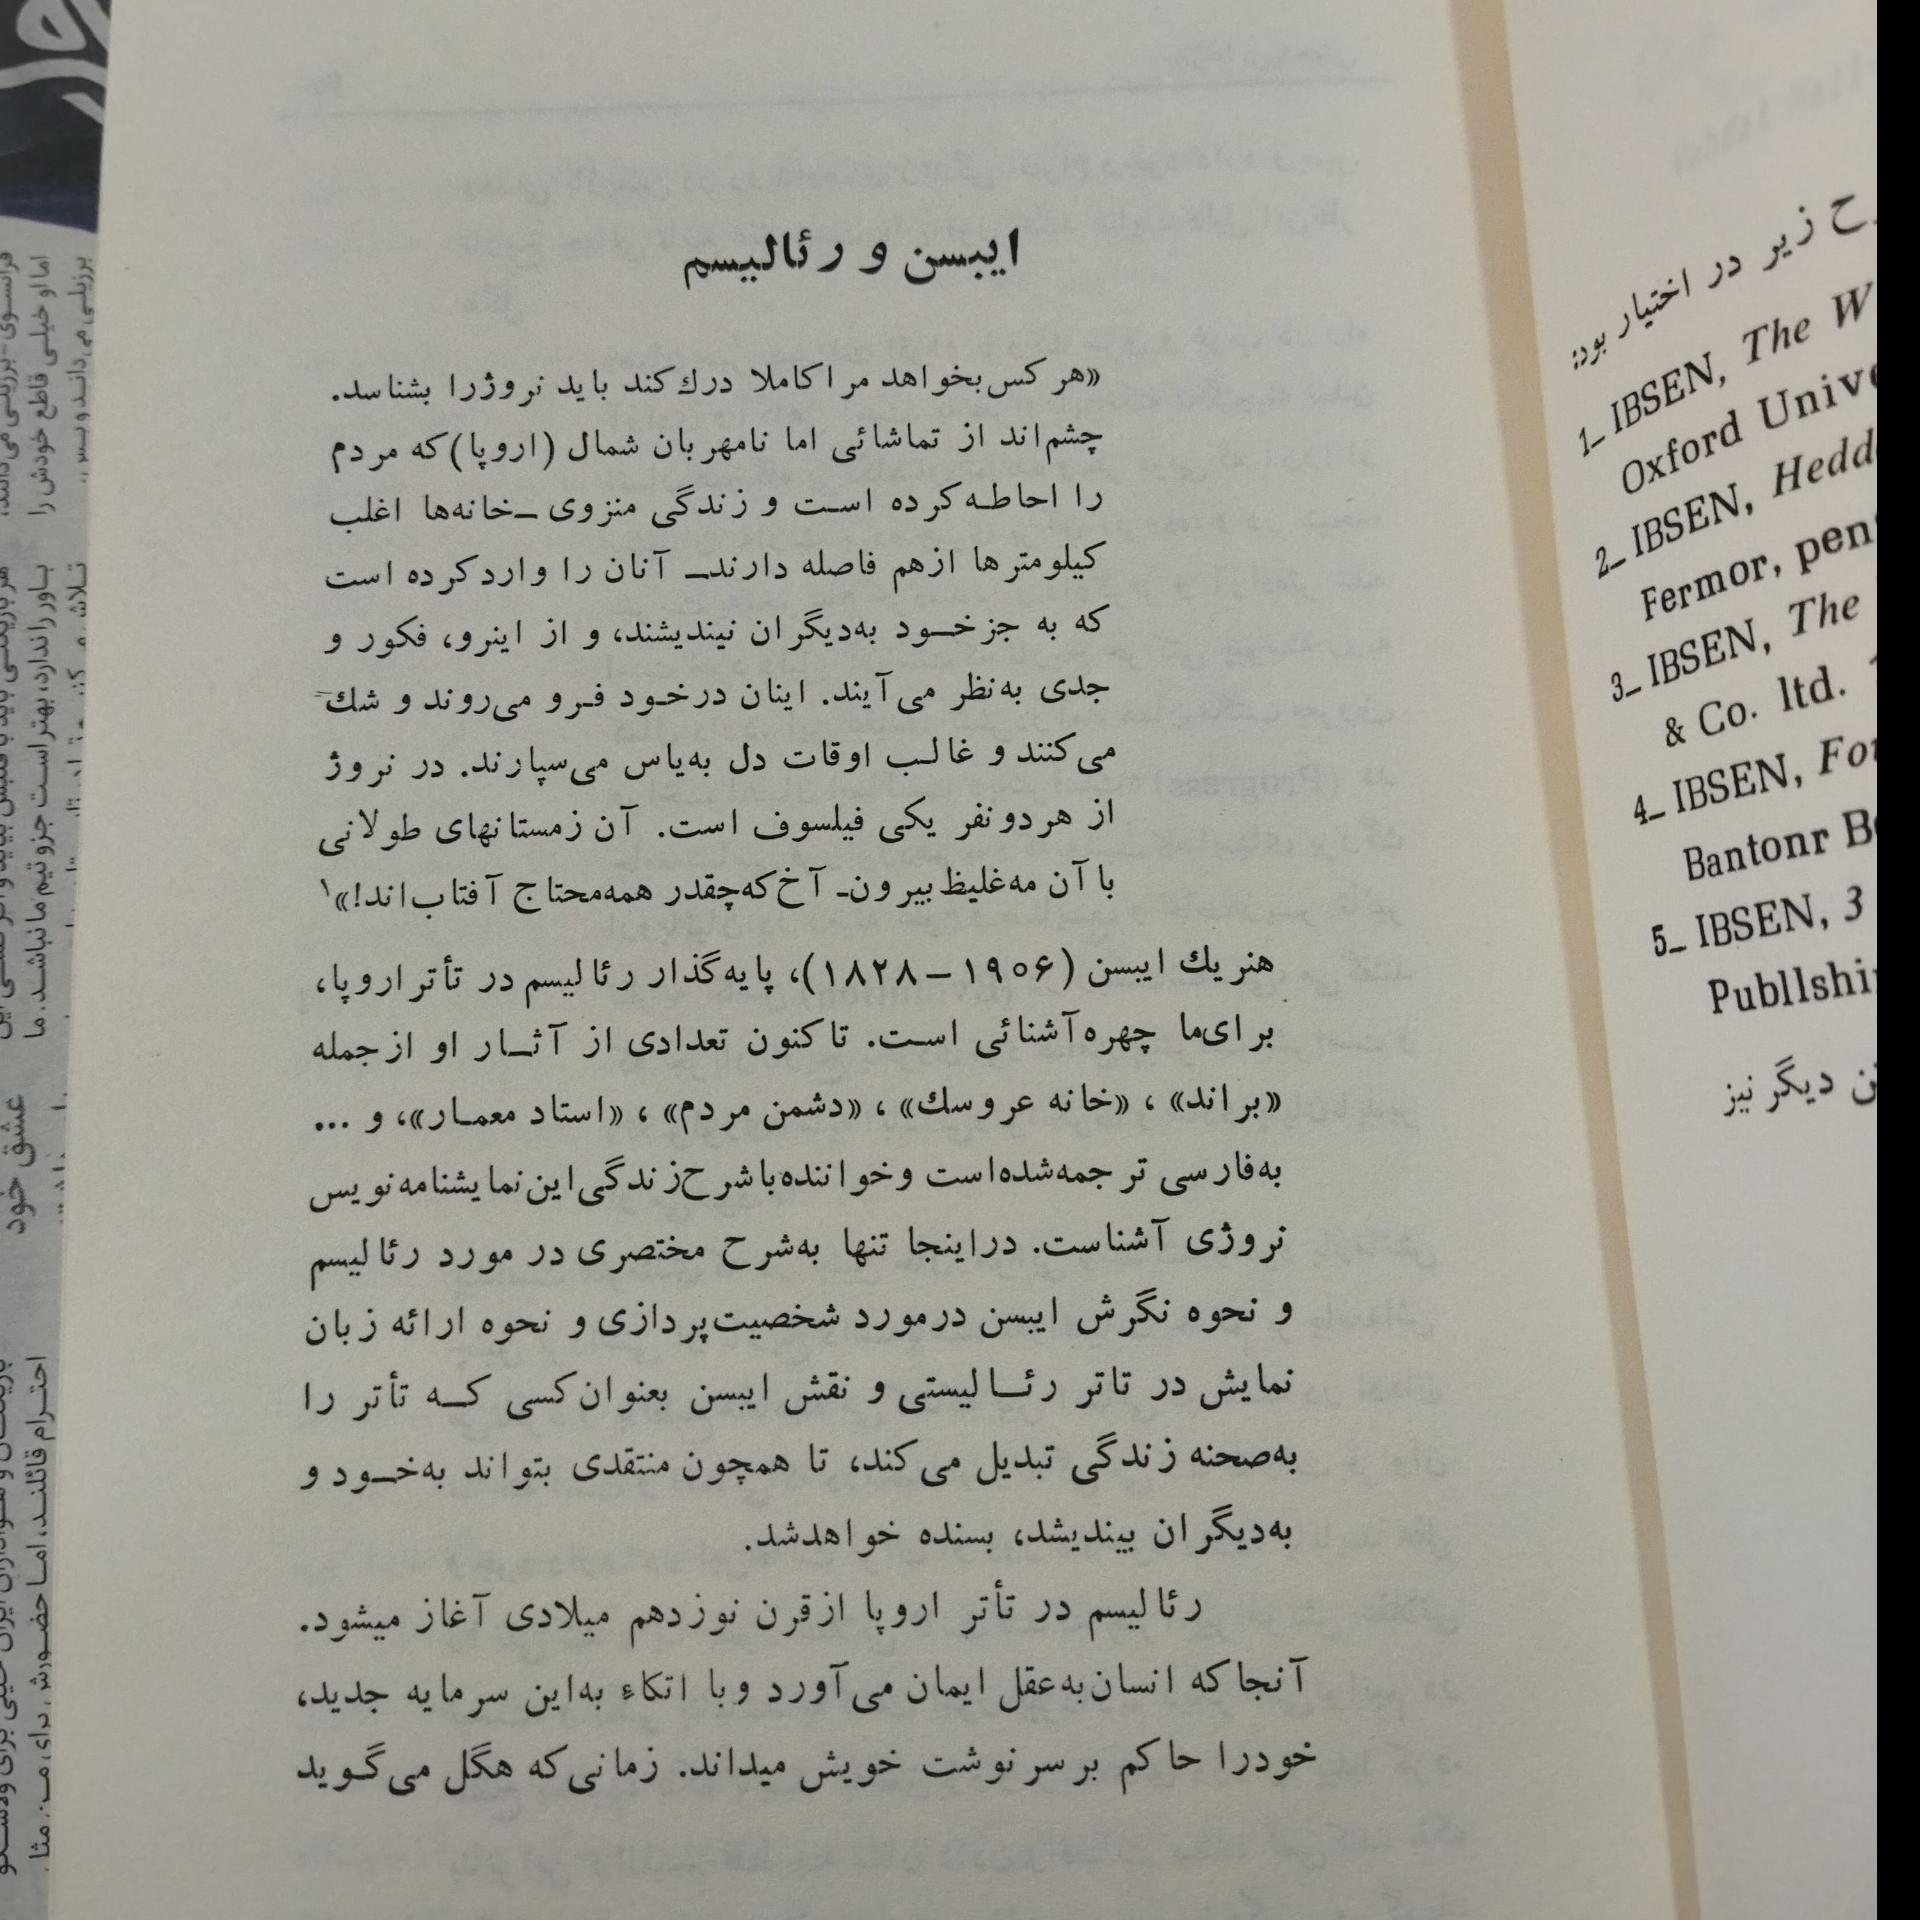 ایبسن و رئالیسم
«هر کس بخواهد مرا کاملا درك کند باید نروژ را بشناسد.
چشم‌انداز تماشائی اما نامهربان شمال (اروپا) که مردم
را احاطه کرده است و زندگی منزوی ــ خانه‌ها اغلب
کیلومترها از هم فاصله دارند ــ آنان را وارد کرده است
که به جز خود به‌دیگران نیندیشند، و از اینرو، فکور و
جدی به‌نظر می‌آیند. اینان در خود فرو می‌روند و شك
می‌کنند و غالب اوقات دل به‌یاس می‌سپارند. در نروژ
از هر دو نفر یکی فیلسوف است. آن زمستانهای طولانی
با آن مه غلیظ بیرون ـ آخ که چقدر همه محتاج آفتاب‌اند!»۱
هنریك ایبسن (۱۹۰۶ – ۱۸۲۸)، پایه‌گذار رئالیسم در تأتر اروپا،
برای‌ما چهره آشنائی است. تاکنون تعدادی از آثار او از جمله
«براند» ، «خانه عروسك» ، «دشمن مردم» ، «استاد معمار»، و ...
به‌فارسی ترجمه‌شده‌است و خواننده با شرح زندگی این نمایشنامه‌نویس
نروژی آشناست. در اینجا تنها به‌شرح مختصری در مورد رئالیسم
و نحوه نگرش ایبسن در مورد شخصیت‌پردازی و نحوه ارائه زبان
نمایش در تاتر رئالیستی و نقش ایبسن بعنوان کسی که تأتر را
به‌صحنه زندگی تبدیل می‌کند، تا همچون منتقدی بتواند به‌خود و
به‌دیگران بیندیشد، بسنده خواهد شد.
رئالیسم در تأتر اروپا از قرن نوزدهم میلادی آغاز میشود.
آنجا که انسان به عقل ایمان می‌آورد و با اتکاءِ به‌این سرمایه جدید،
خود را حاکم بر سرنوشت خویش میداند. زمانی که هگل می‌گوید
زیر در اختیار بود:
1_ IBSEN, The
Oxford
2_ IBSEN,
Fermor,
3_ IBSEN, The
& Co. ltd.
4_ IBSEN,
Bantonr
5_ IBSEN, 3
دیگر نیز
عشق خود